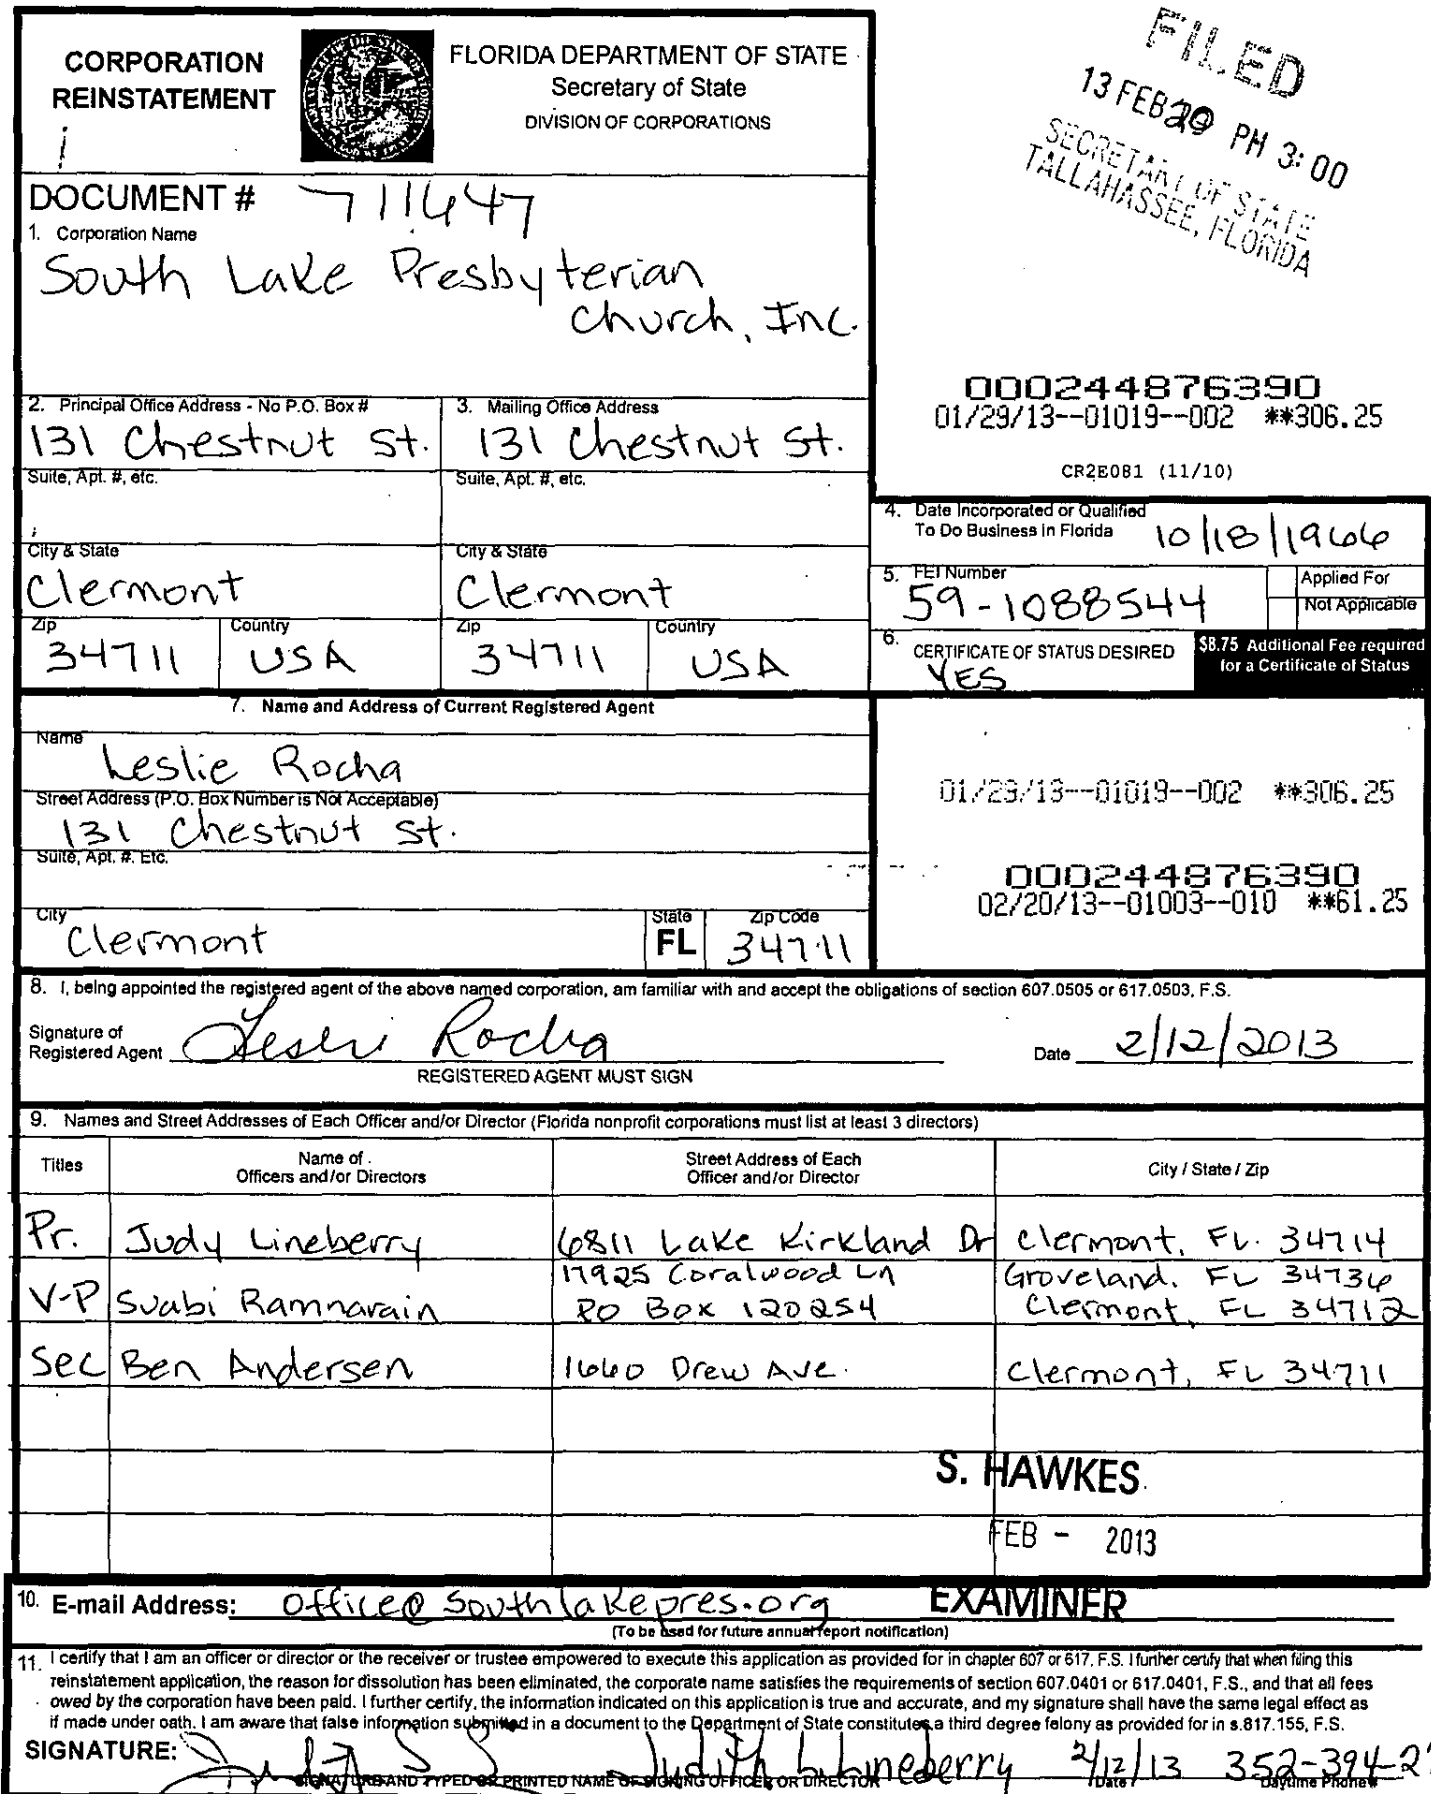 CORPORATION
REINSTATEMENT
FLORIDA DEPARTMENT OF STATE
Secretary of State
DIVISION OF CORPORATIONS
FILED
13 FEB 20 PM 3:00
SECRETARY OF STATE
TALLAHASSEE, FLORIDA
DOCUMENT # 711647
1. Corporation Name
South Lake Presbyterian
Church, Inc.
000244876390
01/29/13--01019--002 **306.25
CR2E081 (11/10)
2. Principal Office Address - No P.O. Box # 3. Mailing Office Address
131 Chestnut St. 131 Chestnut St.
Suite, Apt. #, etc. Suite, Apt. #, etc.
4. Date Incorporated or Qualified
To Do Business in Florida 10/18/1966
City & State City & State
Clermont Clermont
5. FEI Number
59-1088544
Applied For
Not Applicable
Zip Country Zip Country
34711 USA 34711 USA
6. CERTIFICATE OF STATUS DESIRED
YES
$8.75 Additional Fee required
for a Certificate of Status
7. Name and Address of Current Registered Agent
Name
Leslie Rocha
Street Address (P.O. Box Number is Not Acceptable)
131 Chestnut St.
Suite, Apt. #. Etc.
City State Zip Code
Clermont FL 34711
01/29/13--01019--002 **306.25
000244876390
02/20/13--01003--010 **61.25
8. I, being appointed the registered agent of the above named corporation, am familiar with and accept the obligations of section 607.0505 or 617.0503, F.S.
Signature of
Registered Agent Leslie Rocha Date 2/12/2013
REGISTERED AGENT MUST SIGN
9. Names and Street Addresses of Each Officer and/or Director (Florida nonprofit corporations must list at least 3 directors)
Titles Name of Officers and/or Directors Street Address of Each Officer and/or Director City / State / Zip
Pr. Judy Lineberry 6811 Lake Kirkland Dr Clermont, FL. 34714
17925 Coralwood Ln Groveland, FL 34736
V-P Suabi Ramnarain PO Box 120254 Clermont, FL 34712
Sec Ben Andersen 1660 Drew Ave. Clermont, FL 34711
S. HAWKES
FEB - 2013
EXAMINER
10. E-mail Address: office@southlakepres.org
(To be used for future annual report notification)
11. I certify that I am an officer or director or the receiver or trustee empowered to execute this application as provided for in chapter 607 or 617, F.S. I further certify that when filing this
reinstatement application, the reason for dissolution has been eliminated, the corporate name satisfies the requirements of section 607.0401 or 617.0401, F.S., and that all fees
owed by the corporation have been paid. I further certify, the information indicated on this application is true and accurate, and my signature shall have the same legal effect as
if made under oath. I am aware that false information submitted in a document to the Department of State constitutes a third degree felony as provided for in s.817.155, F.S.
SIGNATURE: Judith L. Lineberry 2/12/13 352-394-2
SIGNATURE AND TYPED OR PRINTED NAME OF SIGNING OFFICER OR DIRECTOR Date Daytime Phone #